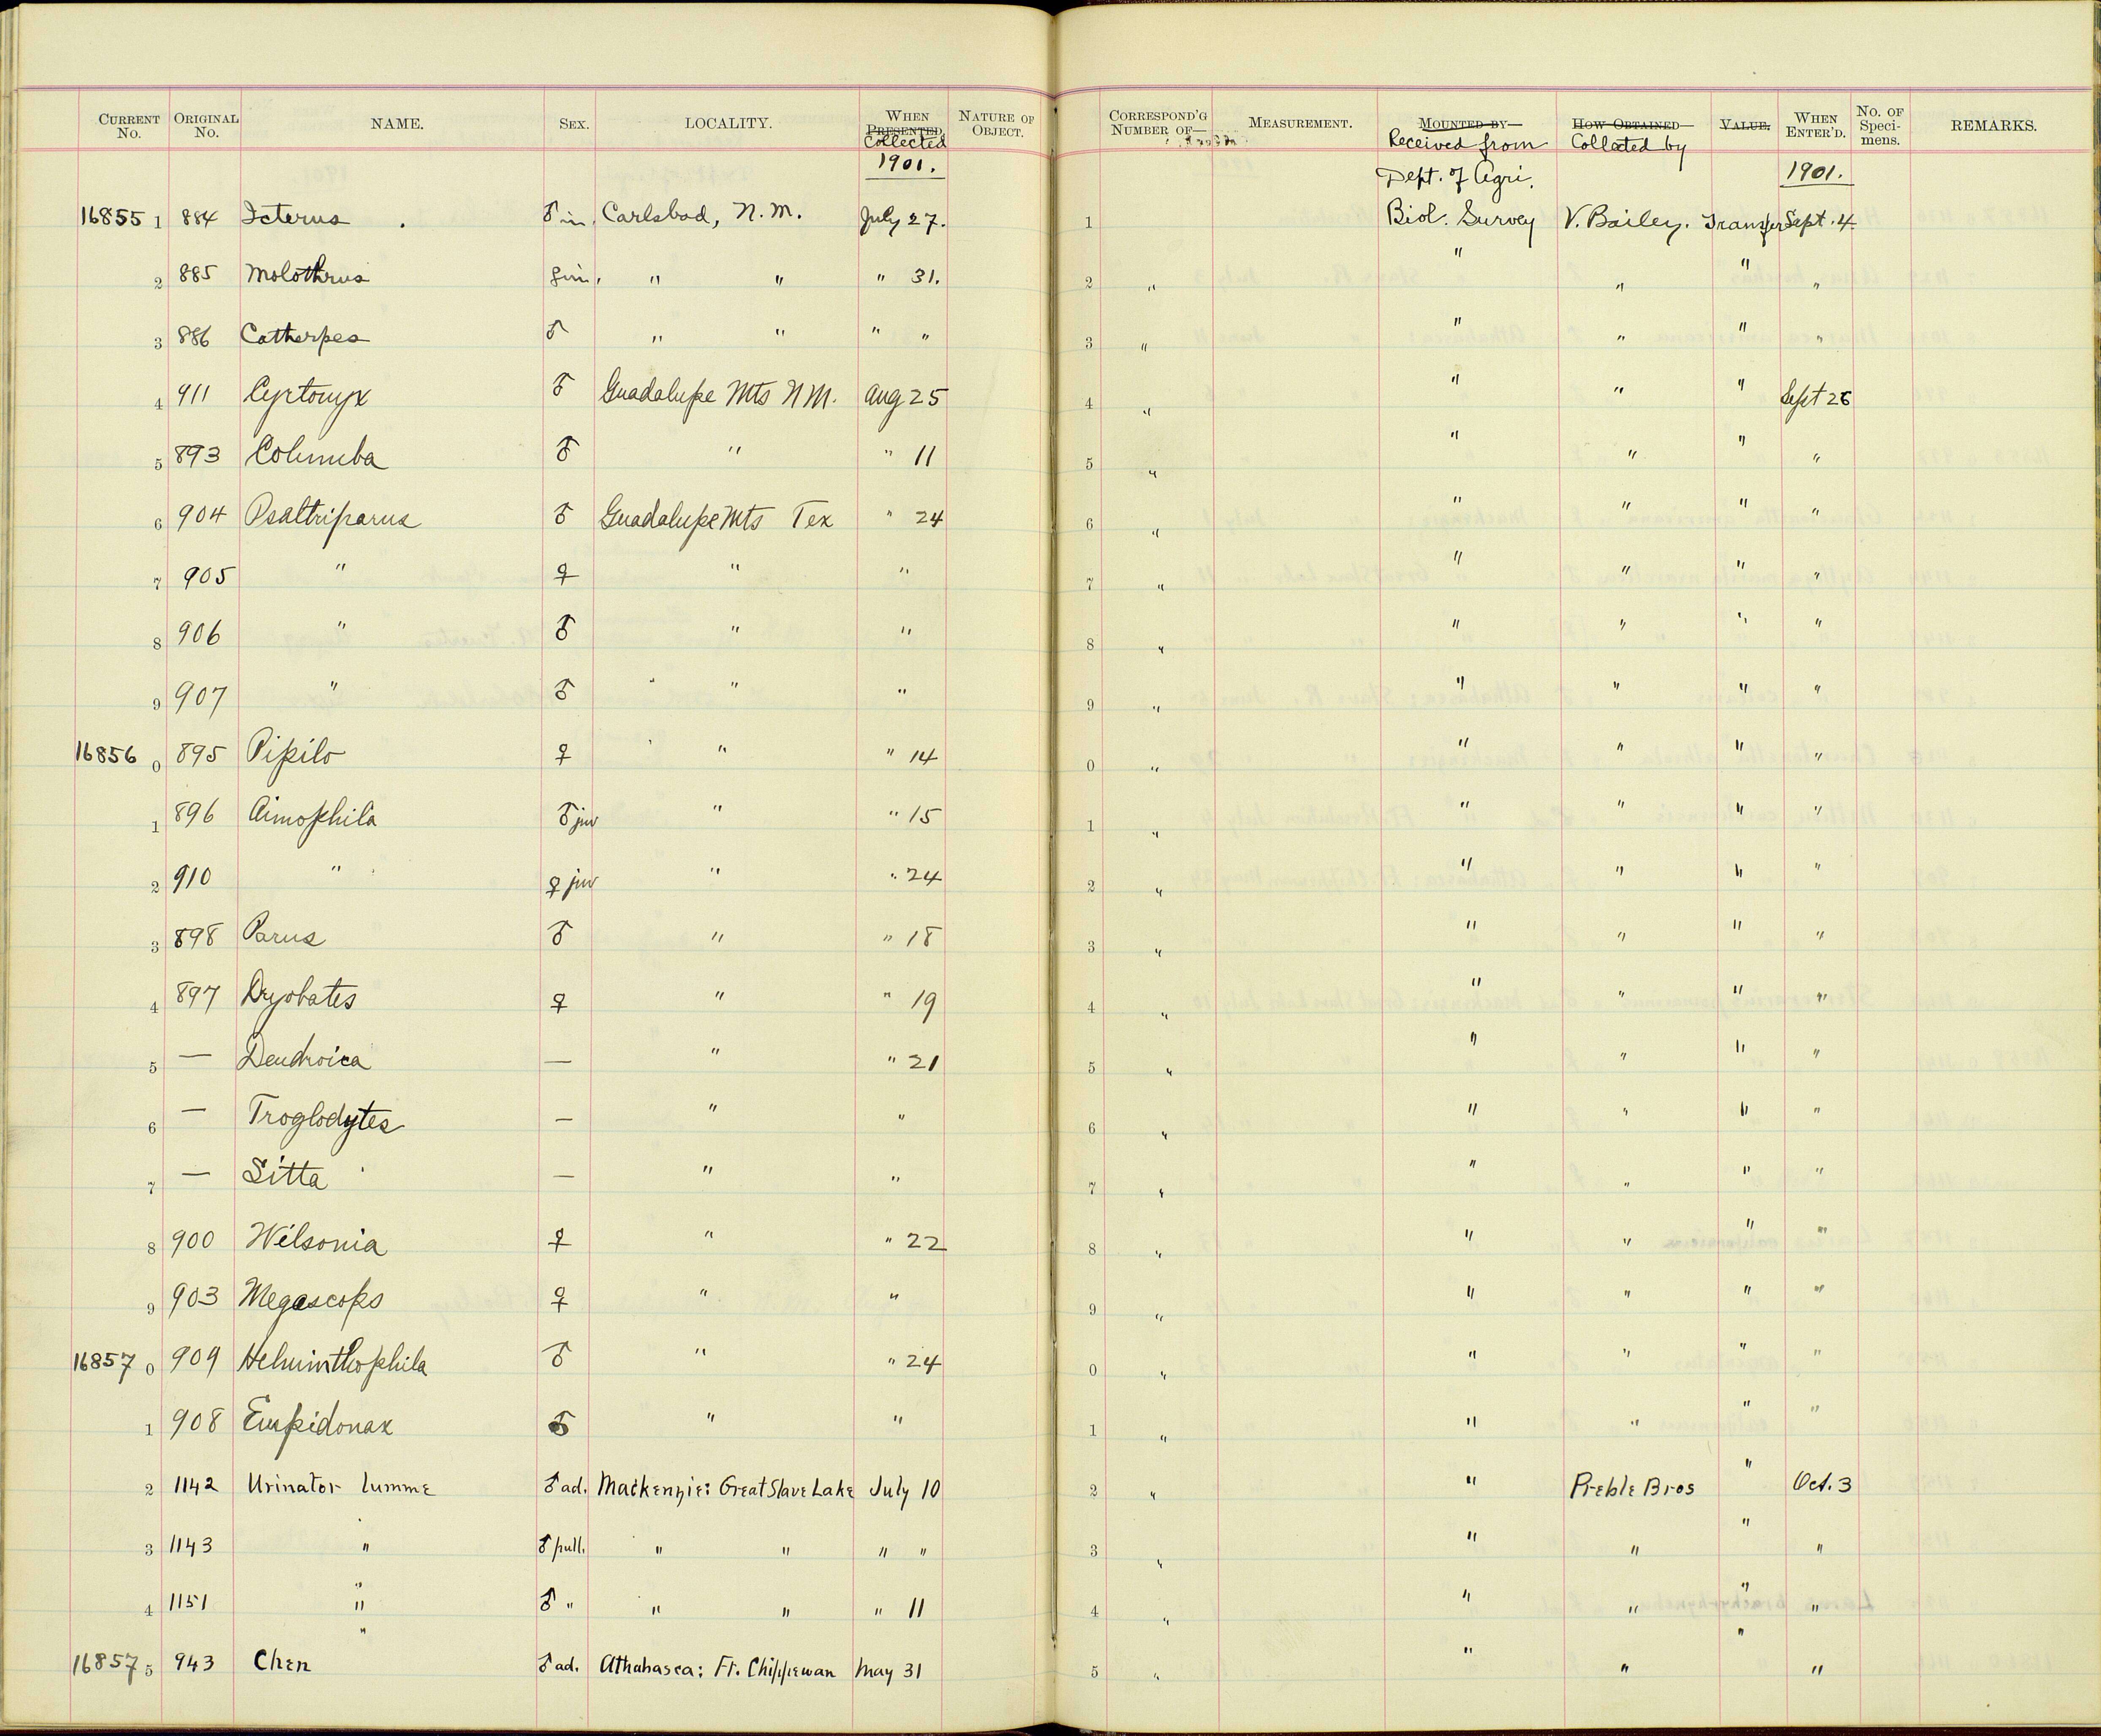 CURRENT No. ORIGINAL No. NAME. SEX. LOCALITY. WHEN PRESENTED Collected NATURE OF OBJECT. CORRESPOND'G NUMBER OF— MEASUREMENT. MOUNTED BY— Received from HOW OBTAINED— Collected by VALUE. WHEN ENTER'D. No. OF Speci-mens. REMARKS.
1901. Dept. of Agri. 1901.
16855 1 884 Icterus ♂ im. Carlsbad, N.M. July 27. 1 Biol. Survey V. Bailey. Transfer Sept. 4
2 885 Molothrus ♀ im. " " " 31. 2 " " " " "
3 886 Catherpes ♂ " " " " 3 " " " " "
4 911 Cyrtonyx ♂ Guadalupe Mts N.M. Aug 25 4 " " " " Sept 26
5 893 Columba ♂ " " 11 5 " " " " "
6 904 Psaltriparus ♂ Guadalupe Mts Tex " 24 6 " " " " "
7 905 " ♀ " " 7 " " " " "
8 906 " ♂ " " 8 " " " " "
9 907 " ♂ " " 9 " " " " "
16856 0 895 Pipilo ♀ " " 14 0 " " " " "
1 896 Aimophila ♂ juv " " 15 1 " " " " "
2 910 " ♀ juv " " 24 2 " " " " "
3 898 Parus ♂ " " 18 3 " " " " "
4 897 Dryobates ♀ " " 19 4 " " " " "
5 — Dendroica — " " 21 5 " " " " "
6 — Troglodytes — " " 6 " " " " "
7 — Sitta — " " 7 " " " " "
8 900 Wilsonia ♀ " " 22 8 " " " " "
9 903 Megascops ♀ " " 9 " " " " "
16857 0 909 Helminthophila ♂ " " 24 0 " " " " "
1 908 Empidonax ♂ " " 1 " " " " "
2 1142 Urinator lumme ♂ ad. Mackenzie: Great Slave Lake July 10 2 " " Preble Bros " Oct. 3
3 1143 " ♂ pull. " " " " 3 " " " " "
4 1151 " ♂ " " " " 11 4 " " " " "
16857 5 943 Chen ♂ ad. Athabasca: Ft. Chippewan May 31 5 " " " " "